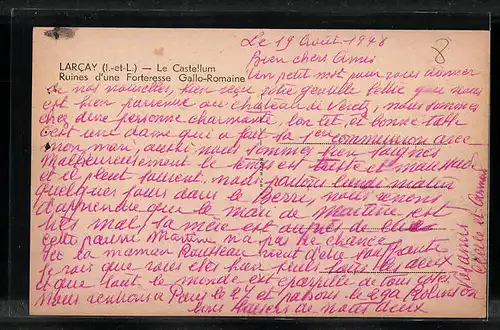 LARÇAY (I.-et-L.) — Le Castellum
Ruines d'une Forteresse Gallo-Romaine
Le 19 Août 1948
8
Bien chers Amis
Un petit mot pour vous donner
de nos nouvelles, bien reçu votre gentille lettre qui nous
est bien parvenue au château de Veretz, nous sommes
chez une personne charmante, bon lit, et bonne table
c'est une dame qui a fait sa 1ère communion avec
mon mari, aussi nous sommes bien soignés
Malheureusement le temps est triste et maussade
et il pleut souvent, nous partons lundi matin
quelques jours dans le Berry, nous venons
d'apprendre que le mari de Martine est
très mal, sa mère est auprès de
cette pauvre Martine n'a pas de chance
et la maman Rousseau vient d'être souffrante
Je vois que vous êtes bien seuls tous les deux
et que tout le monde est éparpillé de tous côtés
Nous rentrons à Paris le 24 et
de nous deux